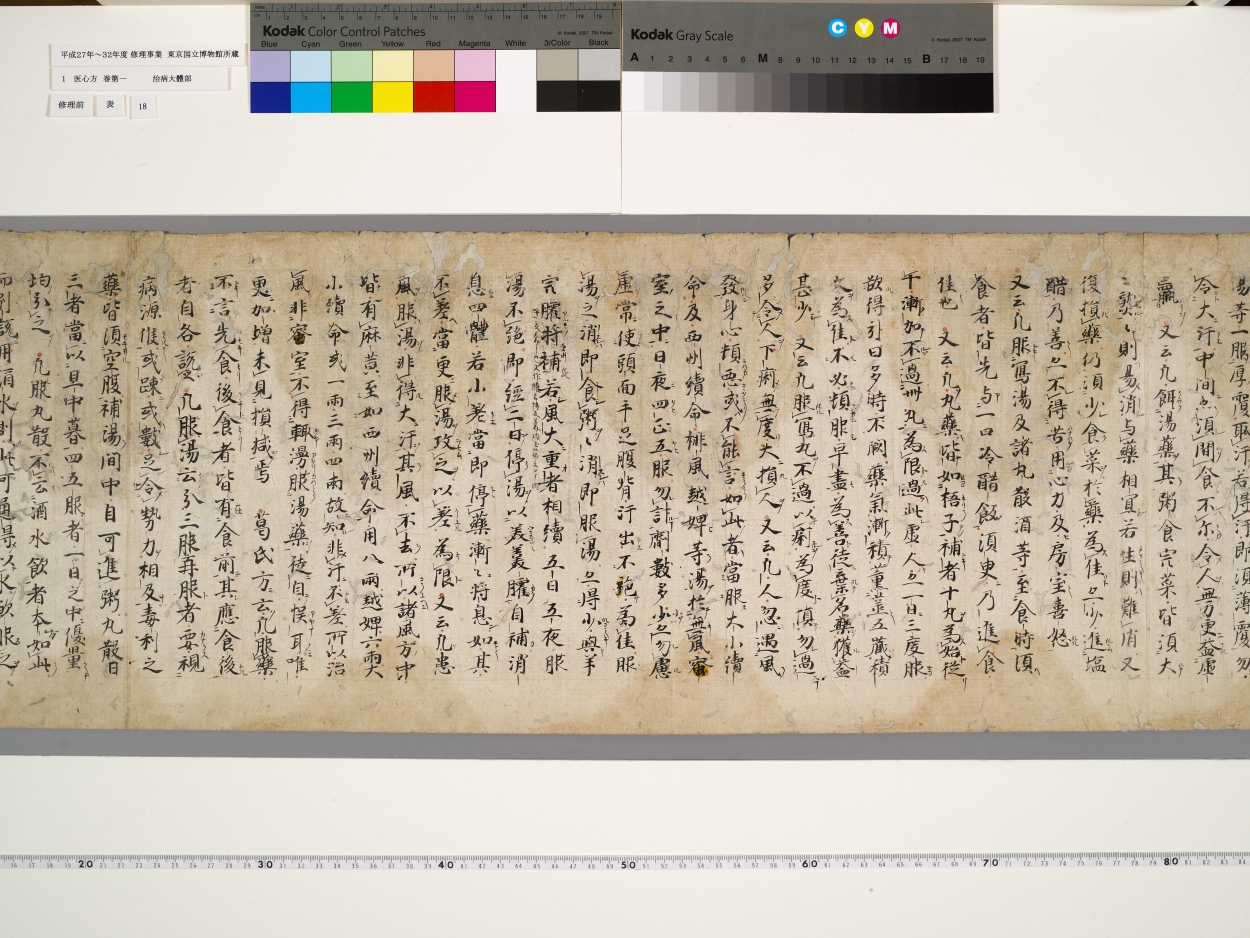 平成27年～32年度 修理事業 東京国立博物館所蔵
1 医心方 巻第一 治病大體部
修理前 表 18
Kodak Color Control Patches
Blue Cyan Green Yellow Red Magenta White 3/Color Black
Kodak Gray Scale
C Y M
A 1 2 3 4 5 6 M 8 9 10 11 12 13 14 15 B 17 18 19
湯等一服厚覆取汗若得汗即須薄覆勿
令大汗中間亦須間食不尔令人無力更益虚
羸 又云凡餌湯藥其粥食完菜皆須大
熟々則易消与藥相宜若生則難消又
復損藥仍須少食菜於藥為佳亦少進塩
醋乃善亦不得苦用心力及房室喜怒
又云凡服寫湯及諸丸散酒等至食時須
食者皆先与一口冷醋飯須臾乃進食
佳也 又云凡丸藥皆如梧子補者十丸為始従
千漸加不過卌丸為限過此虚人亦一日三度服
欲得引日多時不闕藥氣漸積薫蒸五蔵積
久為佳不必頓服早盡為善徒棄名藥獲益
甚少 又云凡服寫丸不過以利為度慎勿過
多令人下利無度大損人 又云凡人忽遇風
發身心頓悪或不能言如此者當服大小續
命及西州續命排風越婢等湯於無風密
室之中日夜四五服勿計劑數多少亦勿慮
虚常使頭面手足腹背汗出不絶為佳服
湯之消即食粥々消即服湯亦得少与羊
完臛将補若風大重者相續五日五夜服
湯不絶即經二日停湯以羹臛自補消
息四體若小差當即停藥漸々将息如其
不差當更服湯攻之以差為限 又云凡患
風服湯非得大汗其風不去所以諸風方中
皆有麻黄至如西州續命用八兩越婢六兩大
小續命或一兩三兩四兩故知非汗不差所以治
風非密室不得輙湯服湯藥徒自悞耳唯
更加增未見損減焉 葛氏方云凡服藥
不言先食後食者皆有食前其應食後
者自各説之 凡服湯云分三服再服者要視
病源候或踈或數足令勢力相及毒利之
藥皆須空腹補湯間中自可進粥丸散日
三者當以旦中暮四五服者一日之中優量
均分之 凡服丸散不云酒水飲者本如此
而別説用酒水則此可通得以水飲服之
20 30 40 50 60 70 80